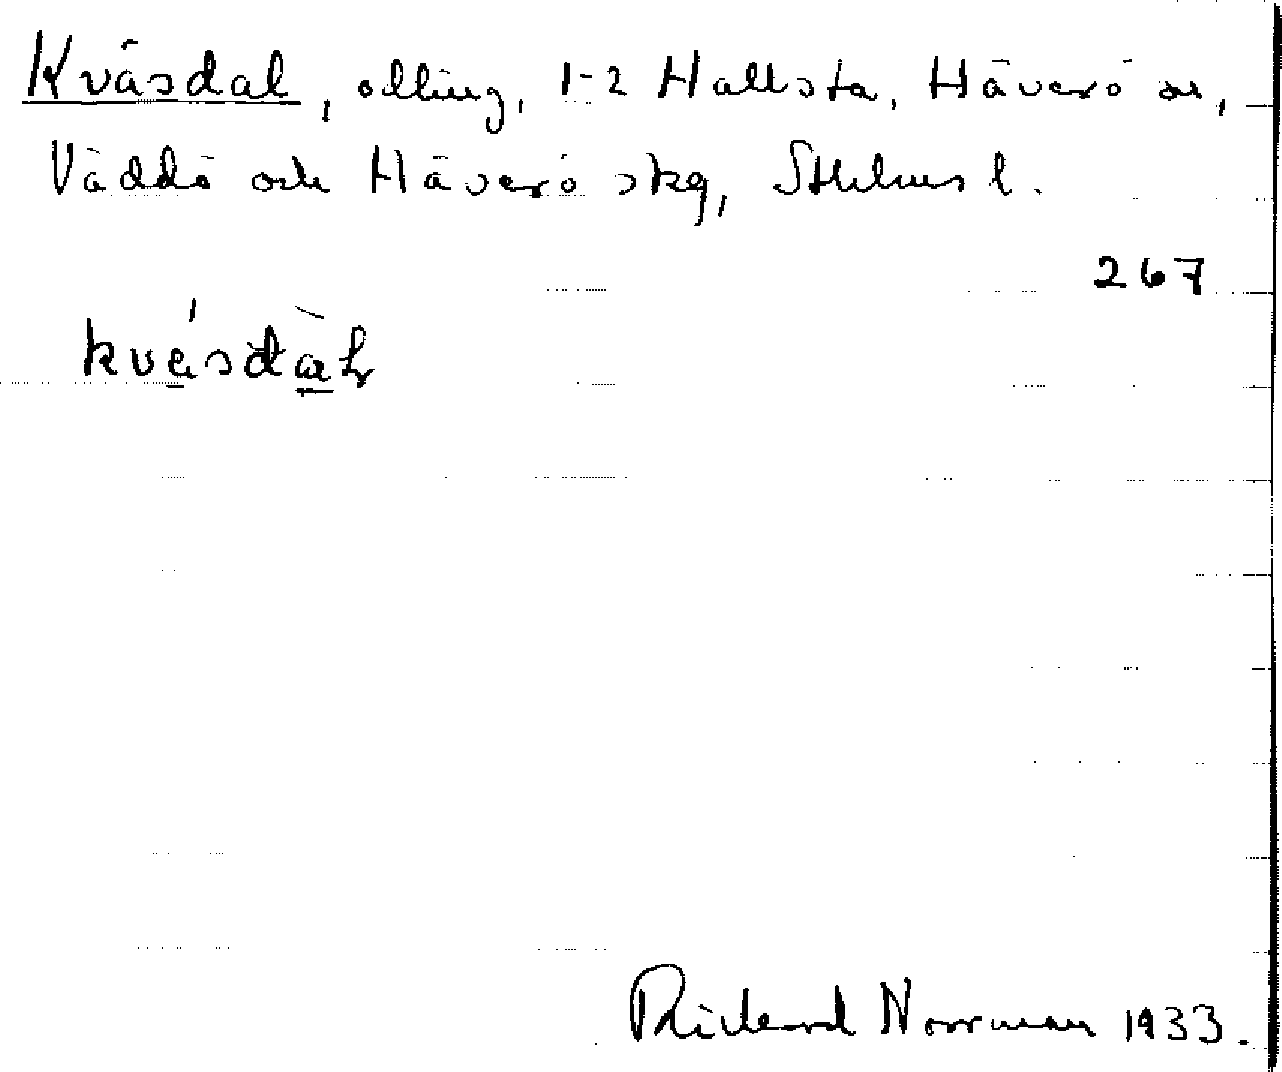 Kväsdal, odling, 1-2 Hallsta, Häverö sn,
Väddö och Häverö skg, Sthlms l.
267
kväsdàl
Rickard Norrman 1933.